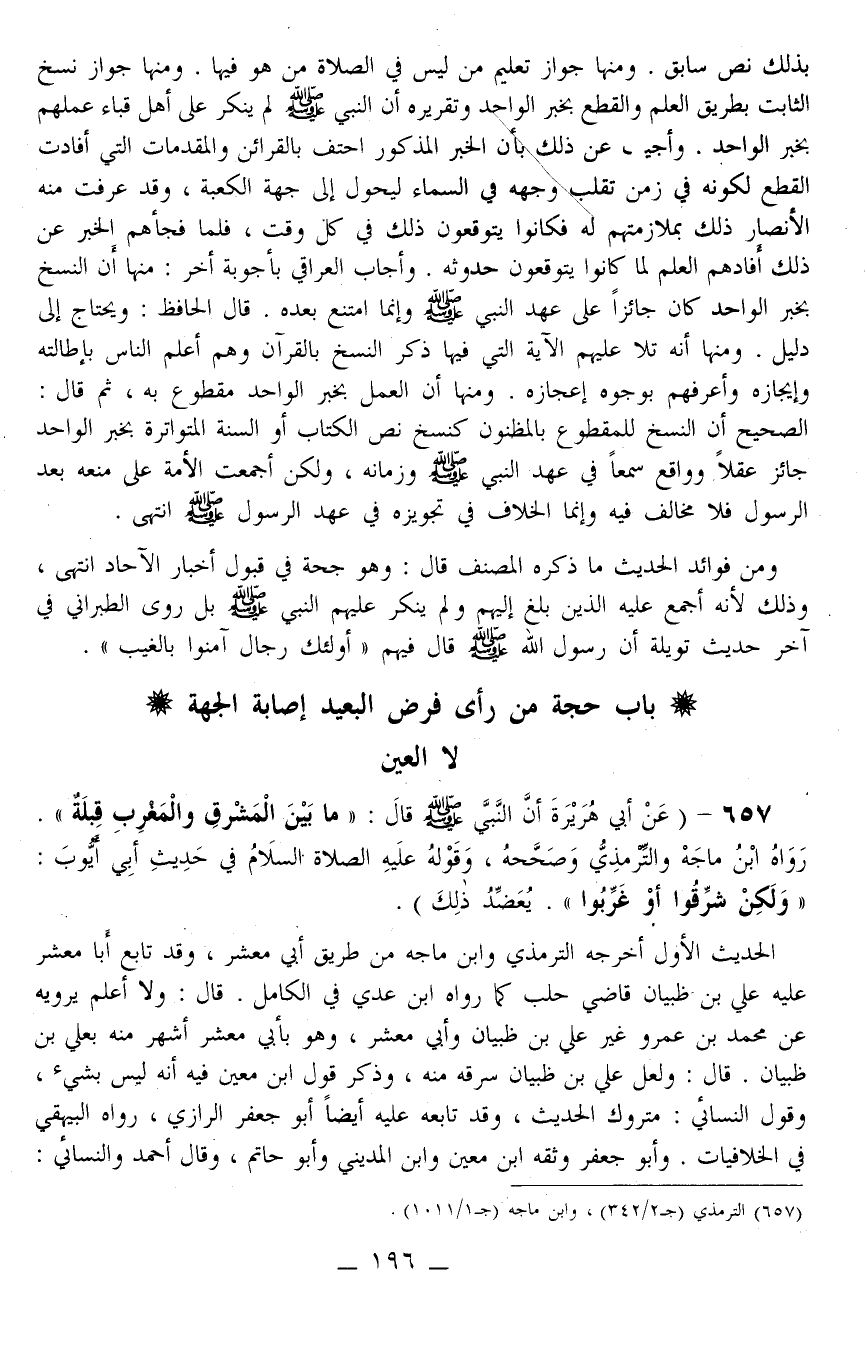 بذلك نص سابق . ومنها جواز تعليم من ليس في الصلاة من هو فيها . ومنها جواز نسخ
الثابت بطريق العلم والقطع بخبر الواحد وتقريره أن النبي ﷺ لم ينكر على أهل قباء عملهم
بخبر الواحد . وأجيب عن ذلك بأن الخبر المذكور احتف بالقرائن والمقدمات التي أفادت
القطع لكونه في زمن تقلب وجهه في السماء ليحول إلى جهة الكعبة ، وقد عرفت منه
الأنصار ذلك بملازمتهم له فكانوا يتوقعون ذلك في كل وقت ، فلما فجأهم الخبر عن
ذلك أفادهم العلم لما كانوا يتوقعون حدوثه . وأجاب العراقي بأجوبة أخر : منها أن النسخ
بخبر الواحد كان جائزاً على عهد النبي ﷺ وإنما امتنع بعده . قال الحافظ : ويحتاج إلى
دليل . ومنها أنه تلا عليهم الآية التي فيها ذكر النسخ بالقرآن وهم أعلم الناس بإطالته
وإيجازه وأعرفهم بوجوه إعجازه . ومنها أن العمل بخبر الواحد مقطوع به ، ثم قال :
الصحيح أن النسخ للمقطوع بالمظنون كنسخ نص الكتاب أو السنة المتواترة بخبر الواحد
جائز عقلاً وواقع سمعاً في عهد النبي ﷺ وزمانه ، ولكن أجمعت الأمة على منعه بعد
الرسول فلا مخالف فيه وإنما الخلاف في تجويزه في عهد الرسول ﷺ انتهى .
ومن فوائد الحديث ما ذكره المصنف قال : وهو جحة في قبول أخبار الآحاد انتهى ،
وذلك لأنه أجمع عليه الذين بلغ إليهم ولم ينكر عليهم النبي ﷺ بل روى الطبراني في
آخر حديث تويلة أن رسول الله ﷺ قال فيهم « أولئك رجال آمنوا بالغيب » .
❋ باب حجة من رأى فرض البعيد إصابة الجهة ❋
لا العين
٦٥٧ – ( عَنْ أبي هُرَيْرَةَ أنَّ النَّبيَّ ﷺ قالَ : « ما بَيْنَ الْمَشْرِقِ والْمَغْرِبِ قِبلَةٌ » .
رَوَاهُ ابْنُ ماجَهْ والتِّرْمذِيُّ وَصَحَّحهُ ، وَقَوْلهُ عليَهِ الصلاة السلَامُ في حَدِيثِ أبِي أَيُّوبَ :
« وَلَكِنْ شرِّقُوا أوْ غَرِّبُوا » . يُعَضِّدُ ذٰلِكَ ) .
الحديث الأول أخرجه الترمذي وابن ماجه من طريق أبي معشر ، وقد تابع أبا معشر
عليه علي بن ظبيان قاضي حلب كما رواه ابن عدي في الكامل . قال : ولا أعلم يرويه
عن محمد بن عمرو غير علي بن ظبيان وأبي معشر ، وهو بأبي معشر أشهر منه بعلي بن
ظبيان . قال : ولعل علي بن ظبيان سرقه منه ، وذكر قول ابن معين فيه أنه ليس بشيء ،
وقول النسائي : متروك الحديث ، وقد تابعه عليه أيضاً أبو جعفر الرازي ، رواه البيهقي
في الخلافيات . وأبو جعفر وثقه ابن معين وابن المديني وأبو حاتم ، وقال أحمد والنسائي :
(٦٥٧) الترمذي (جـ٣٤٢/٢) ، وابن ماجه (جـ١٠١١/١) .
— ١٩٦ —